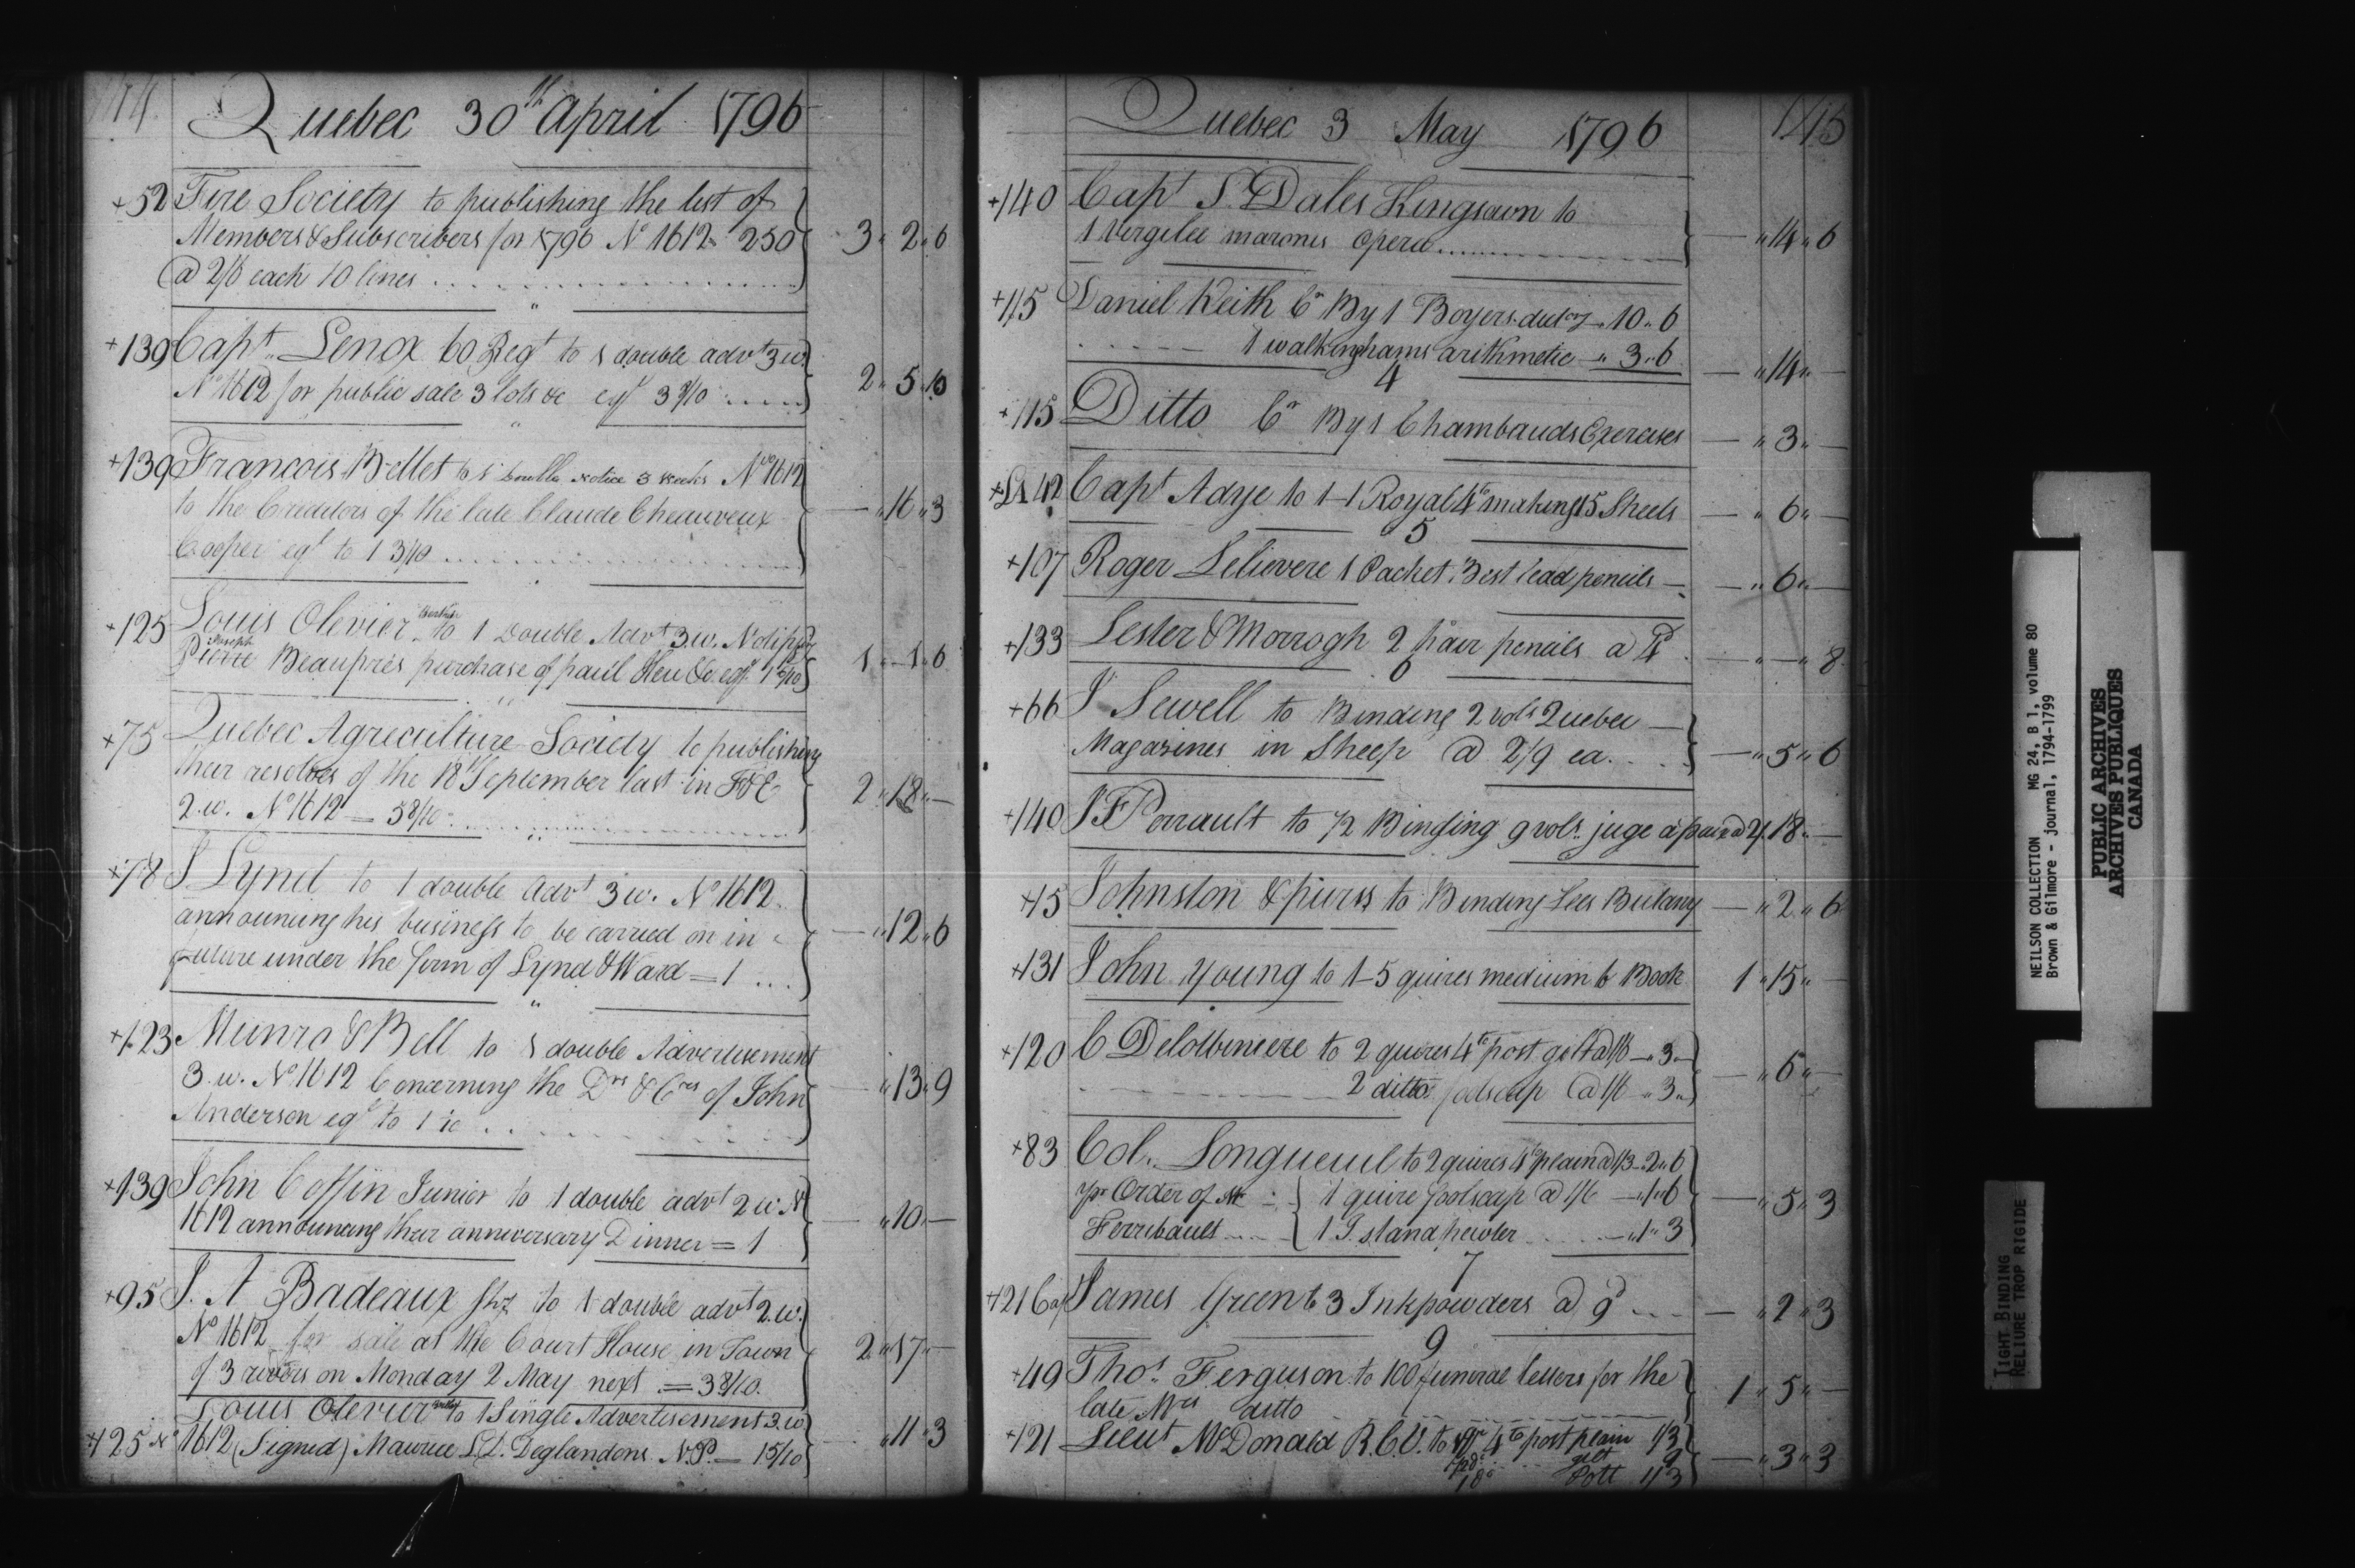 Quebec 30th April 1796
+52 Fire Society to publishing the list of
Members & Subscribers for 1796 No 1612 250
@ 2/6 each 10 lines 3 " 2 " 6
+139 Capt. Lenox 60 Regt to 1 double advt 3 w.
No 1612 for public sale 3 lots &c eql 3 8/10 2 " 5 " 10
+139 Francois Bellet to 1 Double notice 3 weeks No 1612
to the Creditors of the late Claude Cheauveux
Cooper eql to 1 3/10 — " 16 " 3
+125 Louis Olevier to 1 Double Advt 3 w.
Joseph
Pierre Beaupres purchase of paul Heu &c eql 1 " 1 " 6
+75 Quebec Agriculture Society to publishing
their resolves of the 18th September last in F&E
2.w. No 1612 = 5 8/10 2 " 18 " —
+78 J Lynd to 1 double Advt 3 w. No 1612
announcing his business to be carried on in
future under the form of Lynd & Ward = 1 — " 12 " 6
+123 Munro & Bell to 1 double Advertisement
3.w. No 1612 Concerning the Drs & Crs of John
Anderson eql to 1 — " 13 " 9
+139 John Coffin Junior to 1 double advt 2 w. N
1612 announcing their anniversary Dinner = 1 — " 10 " —
+95 J. A Badeaux to 1 double advt 2.w.
No 1612 for sale at the Court House in Town
of 3 rivers on Monday 2 May next = 3 8/10 2 " 17 " —
Louis Olevier to 1 Single Advertisement 3.w
+125 No 1612 (Signed) Maurice L.D. Deglandons N.P. = 1 5/10 " 11 " 3
Quebec 3 May 1796 145
+140 Capt J. Dales Kingsown to
1 Vergilie maronis opera — " 14 " 6
+115 Daniel Keith Cr By 1 Boyers dicty " 10 " 6
1 walkinghams arithmetic " 3 " 6 — " 14 " —
4
+115 Ditto Cr By 1 Chambauds Exercises — " 3 " —
Capt Adye to 1-1 Royal 4to making 15 Sheets — " 6 " —
5
+107 Roger Lelievere 1 Packet Best lead pencils — " 6 " —
+133 Lester & Morrogh 2 hair pencils a 4d — " — " 8
6
+66 J Sewell to Binding 2 vols Quebec
Magazines in Sheep @ 2/9 ea. — " 5 " 6
+140 J F Perrault to 1/2 Binding 9 vols. juge a paix @ 2/ 18 " —
+45 Johnston & purss to Binding Lees Butany — " 2 " 6
+131 John Young to 1-5 quires medium b Book 1 " 15 " —
+120 C Delotbiniere to 2 quires 4to post gilt @ 1/6 — " 3 "
2 ditto foolscap @ 1/6 " 3 " — " 6 " —
+83 Col. Longueuil to 2 quires 4to plain @ 1/3 " 2 " 6
pr Order of Mr 1 quire foolscap @ 1/6 — " 1 " 6 — " 5 " 3
Ferribault 1 I. stand pewter — " 1 " 3
7
+121 James Green to 3 Inkpowders a 9d — " 2 " 3
9
+49 Thos. Ferguson to 100 funeral letters for the
late Mrs ditto 1 " 5 " —
+121 Lieut McDonald R.C.V. to 1 qr 4to post plain 1/3
gilt 9 — " 3 " 3
Pott 1/3
NEILSON COLLECTION MG 24, B 1, volume 80
Brown & Gilmore - journal, 1794-1799
PUBLIC ARCHIVES
ARCHIVES PUBLIQUES
CANADA
TIGHT BINDING
RELIURE TROP RIGIDE